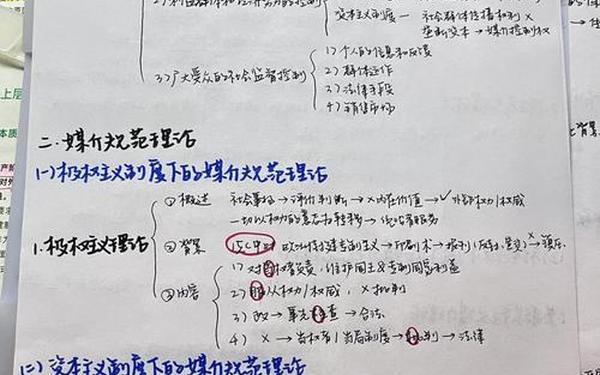 资本主义制度— 社会群体传播权利 ×
垄断资本 → 媒介控制权
3)广大受众的社会监督控制
1)个人的信息和反馈
2)群体运作
3)法律手段
4)销售市场
二.媒介规范理论
(一)极权主义制度下的媒介规范理论
1.极权主义理论
①概述 社会事物 → 评价判断 → ×内在价值 → ✓外部权力/权威
一切以权力的意志为转移 → 统治者服务
②背景 15C中叶 欧洲封建专制主义 → 印刷术 → 报刊
③内容
1)对当权者负责,维护国王&专制国家利益
2)服从权力/权威,×批判
3)政 → 事先检查 → 合法
4)× → 当权者/当局制度 → 批判 → 法律
(二)资本主义制度下的媒介规范理论
上层
本质